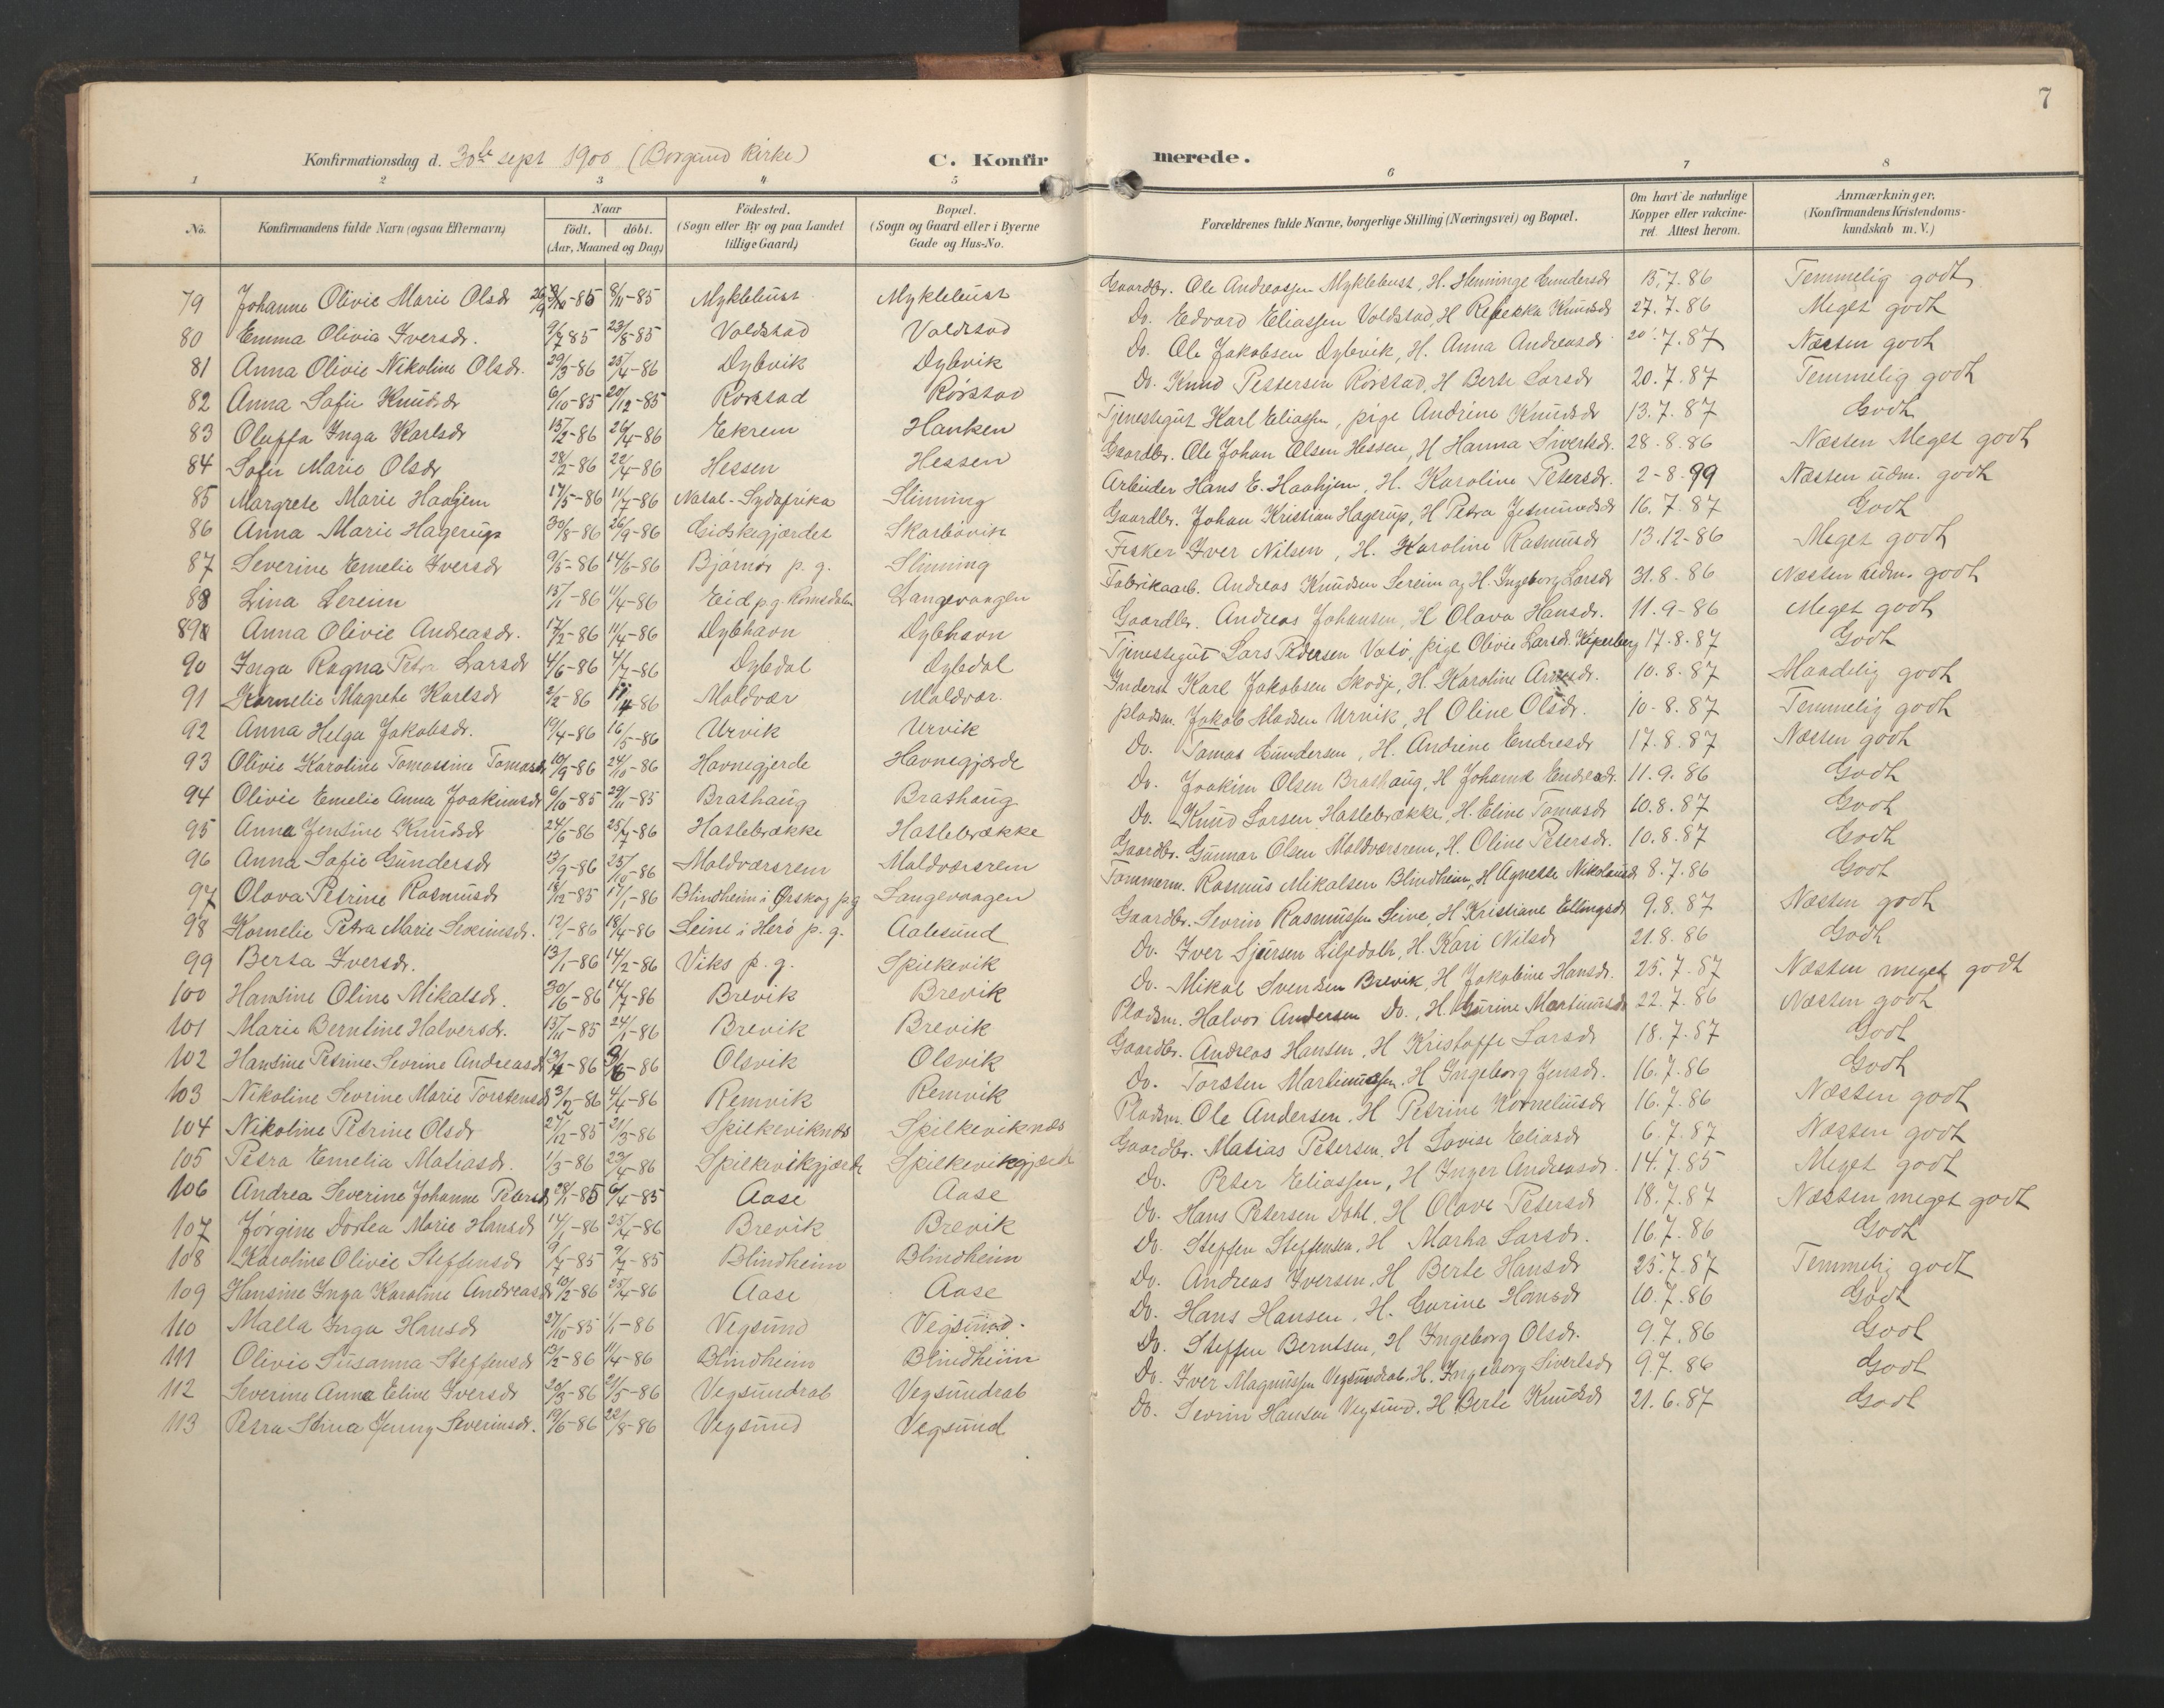 7
Konfirmationsdag d. 30te sept 1900 (Borgund Kirke) C. Konfirmerede.
1 2 3 4 5 6 7 8
No. Konfirmandens fulde Navn (ogsaa Efternavn) Naar födt. döbt. (Aar, Maaned og Dag) Födested. (Sogn eller By og paa Landet tillige Gaard) Bopæl. (Sogn og Gaard eller i Byerne Gade og Hus-No. Forældrenes fulde Navne, borgerlige Stilling (Næringsvei) og Bopæl. Om havt de naturlige Kopper eller vakcineret. Attest herom. Anmærkninger. (Konfirmandens Kristendomskundskab m. V.)
79 Johanne Olivie Marie Olsdr 8/11-85 Myklebust Myklebust Gaardbr. Ole Andreassen Myklebust, H. Henninge Gundersdr 15.7.86 Temmelig godt
80 Emma Olivia Iversdr. 9/7 85 23/8-85 Voldstad Voldstad Do. Edvard Eliassen Voldstad, H Rebekka Knudsdr 27.7.86 Meget godt
81 Anna Olivie Nikoline Olsdr. 29/3-86 25/4-86 Dybvik Dybvik Do. Ole Jakobsen Dybvik, H. Anna Andreasdr 20.7.87 Næsten godt
82 Anna Sofie Knudsdr 6/10-85 20/12-85 Rørstad Rørstad Do. Knud Pettersen Rørstad, H Berte Larsdr 20.7.87 Temmelig godt
83 Oluffa Inga Karlsdr 15/2-86 26/4-86 Ekrem Hanken Tjenestegut Karl Eliassen, pige Andrine Knudsdr 13.7.87 Godt
84 Sofie Marie Olsdr 28/2-86 22/4-86 Hessen Hessen Gaardbr. Ole Johan Olsen Hessen, H Hanna Sivertsdr. 28.8.86 Næsten Meget godt
85 Margrete Marie Haahjem 17/5-86 11/7-86 Natal-Sydafrika Slinning Arbeider Hans E. Haahjem, H. Karoline Petersdr. 2-8.99 Næsten udm. godt
86 Anna Marie Hagerup 30/8-86 26/9-86 Gidskegjærdet Skarbøvik Gaardbr. Johan Kristian Hagerup, H Petra Jetmundsdr 16.7.87 Godt
87 Severine Emelie Iversdr 9/5-86 14/6-86 Bjørnør p. g. Slinning Fisker Iver Nilsen, H. Karoline Rasmusdr 13.12-86 Meget godt
88 Lina Lereim 15/1-86 11/4-86 Eid p.g. Romsdalen Langevaagen Fabrikaarb. Andreas Knudsen Lereim og H. Ingeborg Larsdr 31.8.86 Næsten udm. godt
89 Anna Olivie Andreasdr. 17/2-86 11/4-86 Dybhavn Dybhavn Gaardbr. Andreas Johansen, H Olava Hansdr. 11.9-86 Meget godt
90 Inga Ragna Petra Larsdr 4/6-86 4/7-86 Dybdal Dybdal Tjenestegut Lars Pedersen Vatø, pige Olivie Larsdr. Kiperberg 17.8.87 Godt
91 Kornelie Magrete Karlsdr 2/2-86 11/4-86 Moldvær Moldvær. Inderst Karl Jakobsen Skodje, H. Karoline Arnesdr. 10.8.87 Maadelig godt
92 Anna Helga Jakobsdr. 19/4-86 16/5-86 Urvik Urvik pladsm. Jakob Madsen Urvik, H Oline Olsdr. 10-8.87 Temmelig godt
93 Olivie Karoline Tomassine Tomasdr 10/9-86 24/10-86 Havnegjerde Havnegjærde Do. Tomas Gundersen, H. Andrine Endresdr 17.8.87 Næsten godt
94 Olivie Emelie Anna Joakimsdr 6/10-85 29/11-85 Brathaug Brathaug Do. Joakim Olsen Brathaug, H Johanne Endresdr. 11.9.86 Godt
95 Anna Jensine Knudsdr 24/6-86 25/7-86 Hatlebrække Hatlebrække Do. Knud Larsen Hatlebrække, H. Eline Tomasdr 10.8.87 Godt
96 Anna Sofie Gundersdr 13/9-86 25/10-86 Moldværsrem Moldværsrem Gaardbr. Gunnar Olsen Moldværsrem, H. Oline Petersdr. 10.8.87 Godt
97 Olava Petrine Rasmusdr 18/12-85 17/1-86 Blindheim i Ørskog p.g Langevaagen Tømmerm. Rasmus Mikalsen Blindheim, H Agnethe Nikolausdr 8.7.86 Godt
98 Kornelie Petra Marie Severinsdr. 12/1-86 18/4-86 Leine i Herø p. g. Aalesund Gaardbr. Sevrin Rasmussen Leine, H Kristiane Ellingsdr 9.8.87 Næsten godt
99 Berta Iversdr. 13/1-86 14/2-86 Viks p. g. Spilkevik Do. Iver Sjursen Liljedalh, H. Kari Nilsdr 21.8.86 Godt
100 Hansine Oline Mikalsdr. 30/6-86 14/7-86 Brevik Brevik Do. Mikal Svendsen Brevik, H Jakobine Hansdr. 25.7.87 Næsten meget godt
101 Marie Berntine Halversdr. 15/11-85 24/1-86 Brevik Brevik Pladsm. Halvor Andersen Do., H. Gurine Martinusdr 22.7.86 Næsten godt
102 Hansine Petrine Sevrine Andreasdr -86 -86 Olsvik Olsvik Gaardbr. Andreas Hansen, H Kristoffe Larsdr 18.7.87 Godt
103 Nikoline Sevrine Marie Torstensdr 3/2-86 4/4-86 Remvik Remvik Do. Torsten Martinussen, H Ingeborg Jensdr. 16.7.86 Godt
104 Nikoline Petrine Olsdr 27/12-85 21/3-86 Spilkeviknes Spilkeviknes Pladsm. Ole Andersen, H Petrine Korneliusdr 16.7.86 Næsten godt
105 Petra Emelia Matiasdr. 1/3-86 23/4-86 Spilkevikgjærde Spilkevikgjærde Gaardbr. Matias Petersen, H Lovise Eliasdr 6.7.87 Næsten godt
106 Andrea Severine Johanne Petersdr 28/1-85 6/4-85 Aase Aase Do. Peter Eliassen, H Inger Andreasdr. 14.7.85 Meget godt
107 Jørgine Dortea Marie Hansdr 14/1-86 25/4-86 Brevik Brevik Do. Hans Petersen Dahl, H Olave Petersdr 18.7.87 Næsten meget godt
108 Karoline Olivie Steffensdr 9/7-85 Blindheim Blindheim Do. Steffen Steffensen, H Marha Larsdr. 16.7.86 Godt
109 Hansine Inga Karoline Andreasdr 10/2-86 25/4-86 Aase Aase Do. Andreas Iversen, H Berte Hansdr 25.7.87 Temmelig godt
110 Malla Inga Hansdr 27/10-85 1/1-86 Vegsund Vegsund. Do. Hans Hansen, H. Gurine Hansdr 10.7.86 Godt
111 Olivie Susanna Steffensdr 13/2-86 11/4-86 Blindheim Blindheim Do. Steffen Berntsen, H Ingeborg Olsdr. 9.7.86 Godt
112 Severine Anna Eline Iversdr 20/3-86 21/5-86 Vegsundrab Vegsundrab Do. Iver Magnussen Vegsundrab, H. Ingeborg Sivertsdr 9.7.86 Godt
113 Petra Stina Jenny Severinsdr. 19/6-86 22/8-86 Vegsund Vegsund Do. Sevrin Hansen Vegsund, H Berte Knudsdr 21.6.87 Godt